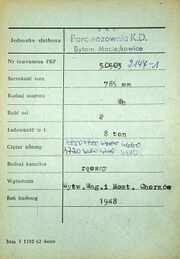 Jednostka służbowa
Parowozownia K.D.
Bytom Maciejkowice
Nr inwentarza PKP 50503 2147-1
Szerokość toru 785 mm
Rodzaj wagonu Wh
Ilość osi 2
Ładowność w t. 8 ton
Ciężar własny
4720 4610
Rodzaj hamulca ręczny
Wytwórnia Wytw.Wag.i Most. Chorzów
Rok budowy 1948